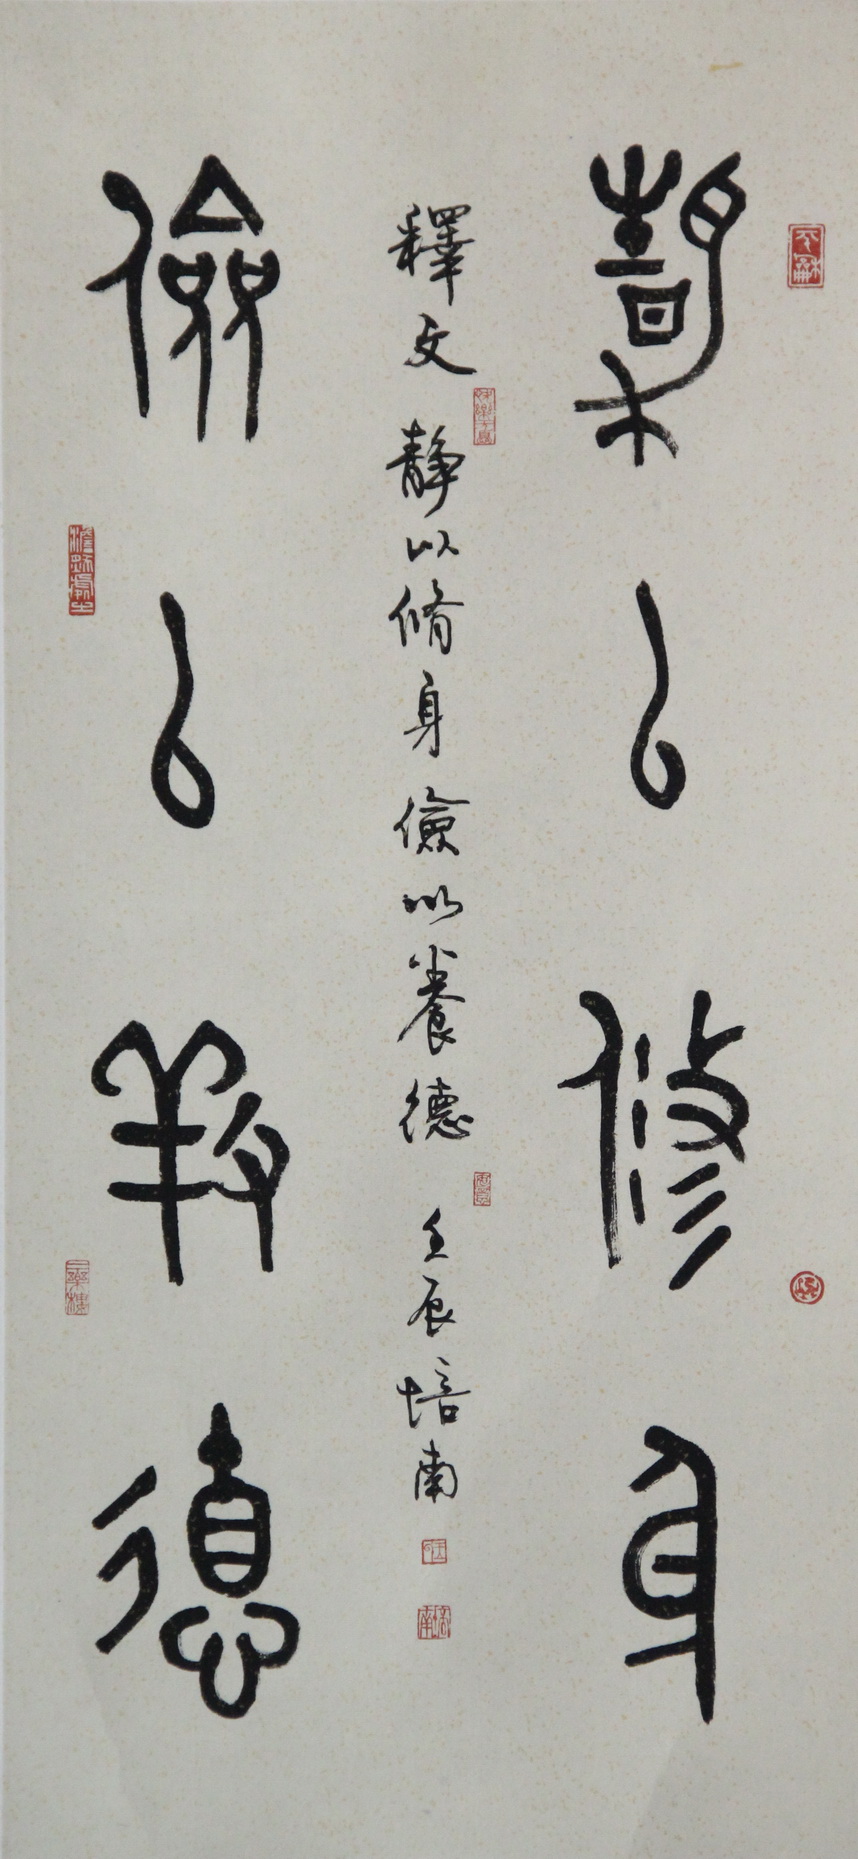 靜以修身
釋文 靜以脩身儉以養德 壬辰培南
儉以養德